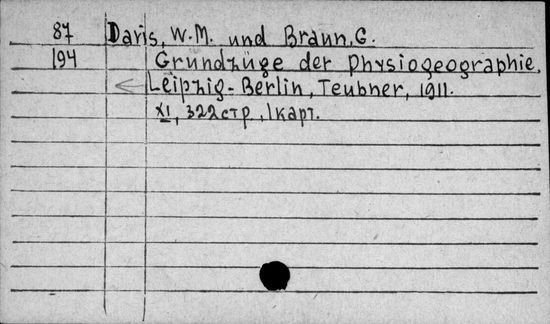 87 Davis, W.M. und Braun, G.
194 Grundzüge der Physiogeographie.
Leipzig-Berlin, Teubner, 1911.
XI, 322стр., 1карт.